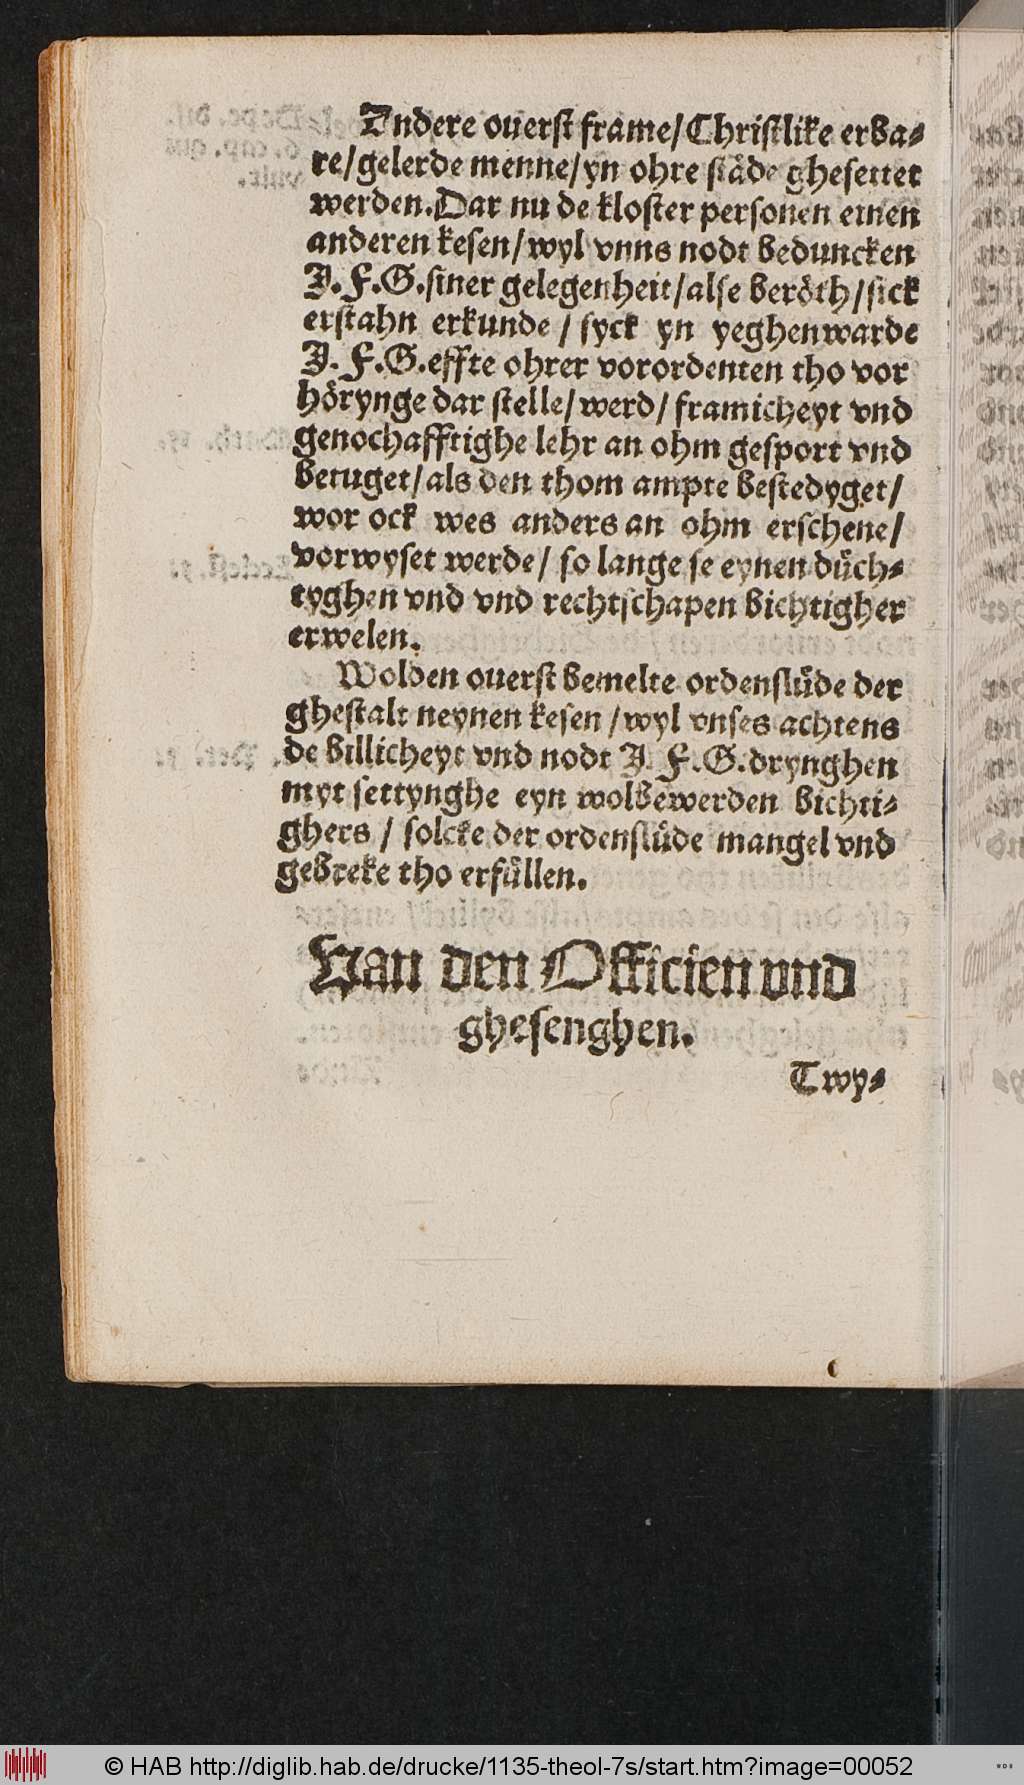 Andere ouerst frame/ Christlike erba⸗
re/ gelerde menne/ yn ohre städe ghesettet
werden. Dar nu de kloster personen einen
anderen kesen/ wyl vnns nodt beduncken
J. F. G. siner gelegenheit/ alse beröth/ sick
erstahn erkunde / syck yn yeghenwarde
J. F. G. effte ohrer vorordenten tho vor
hörynge dar stelle/ werd/ framicheyt vnd
genochafftighe lehr an ohm gesport vnd
betuget/ als den thom ampte bestedyget/
wor ock wes anders an ohm erschene/
vorwyset werde/ so lange se eynen düch⸗
tyghen vnd vnd rechtschapen bichtigher
erwelen.
Wolden ouerst bemelte ordenslüde der
ghestalt neynen kesen / wyl vnses achtens
de billicheyt vnd nodt J. F. G. drynghen
myt settynghe eyn wolbewerden bichti⸗
ghers / solcke der ordenslüde mangel vnd
gebreke tho erfüllen.
Van den Officien vnd
ghesenghen.
Twy⸗
© HAB http://diglib.hab.de/drucke/1135-theol-7s/start.htm?image=00052